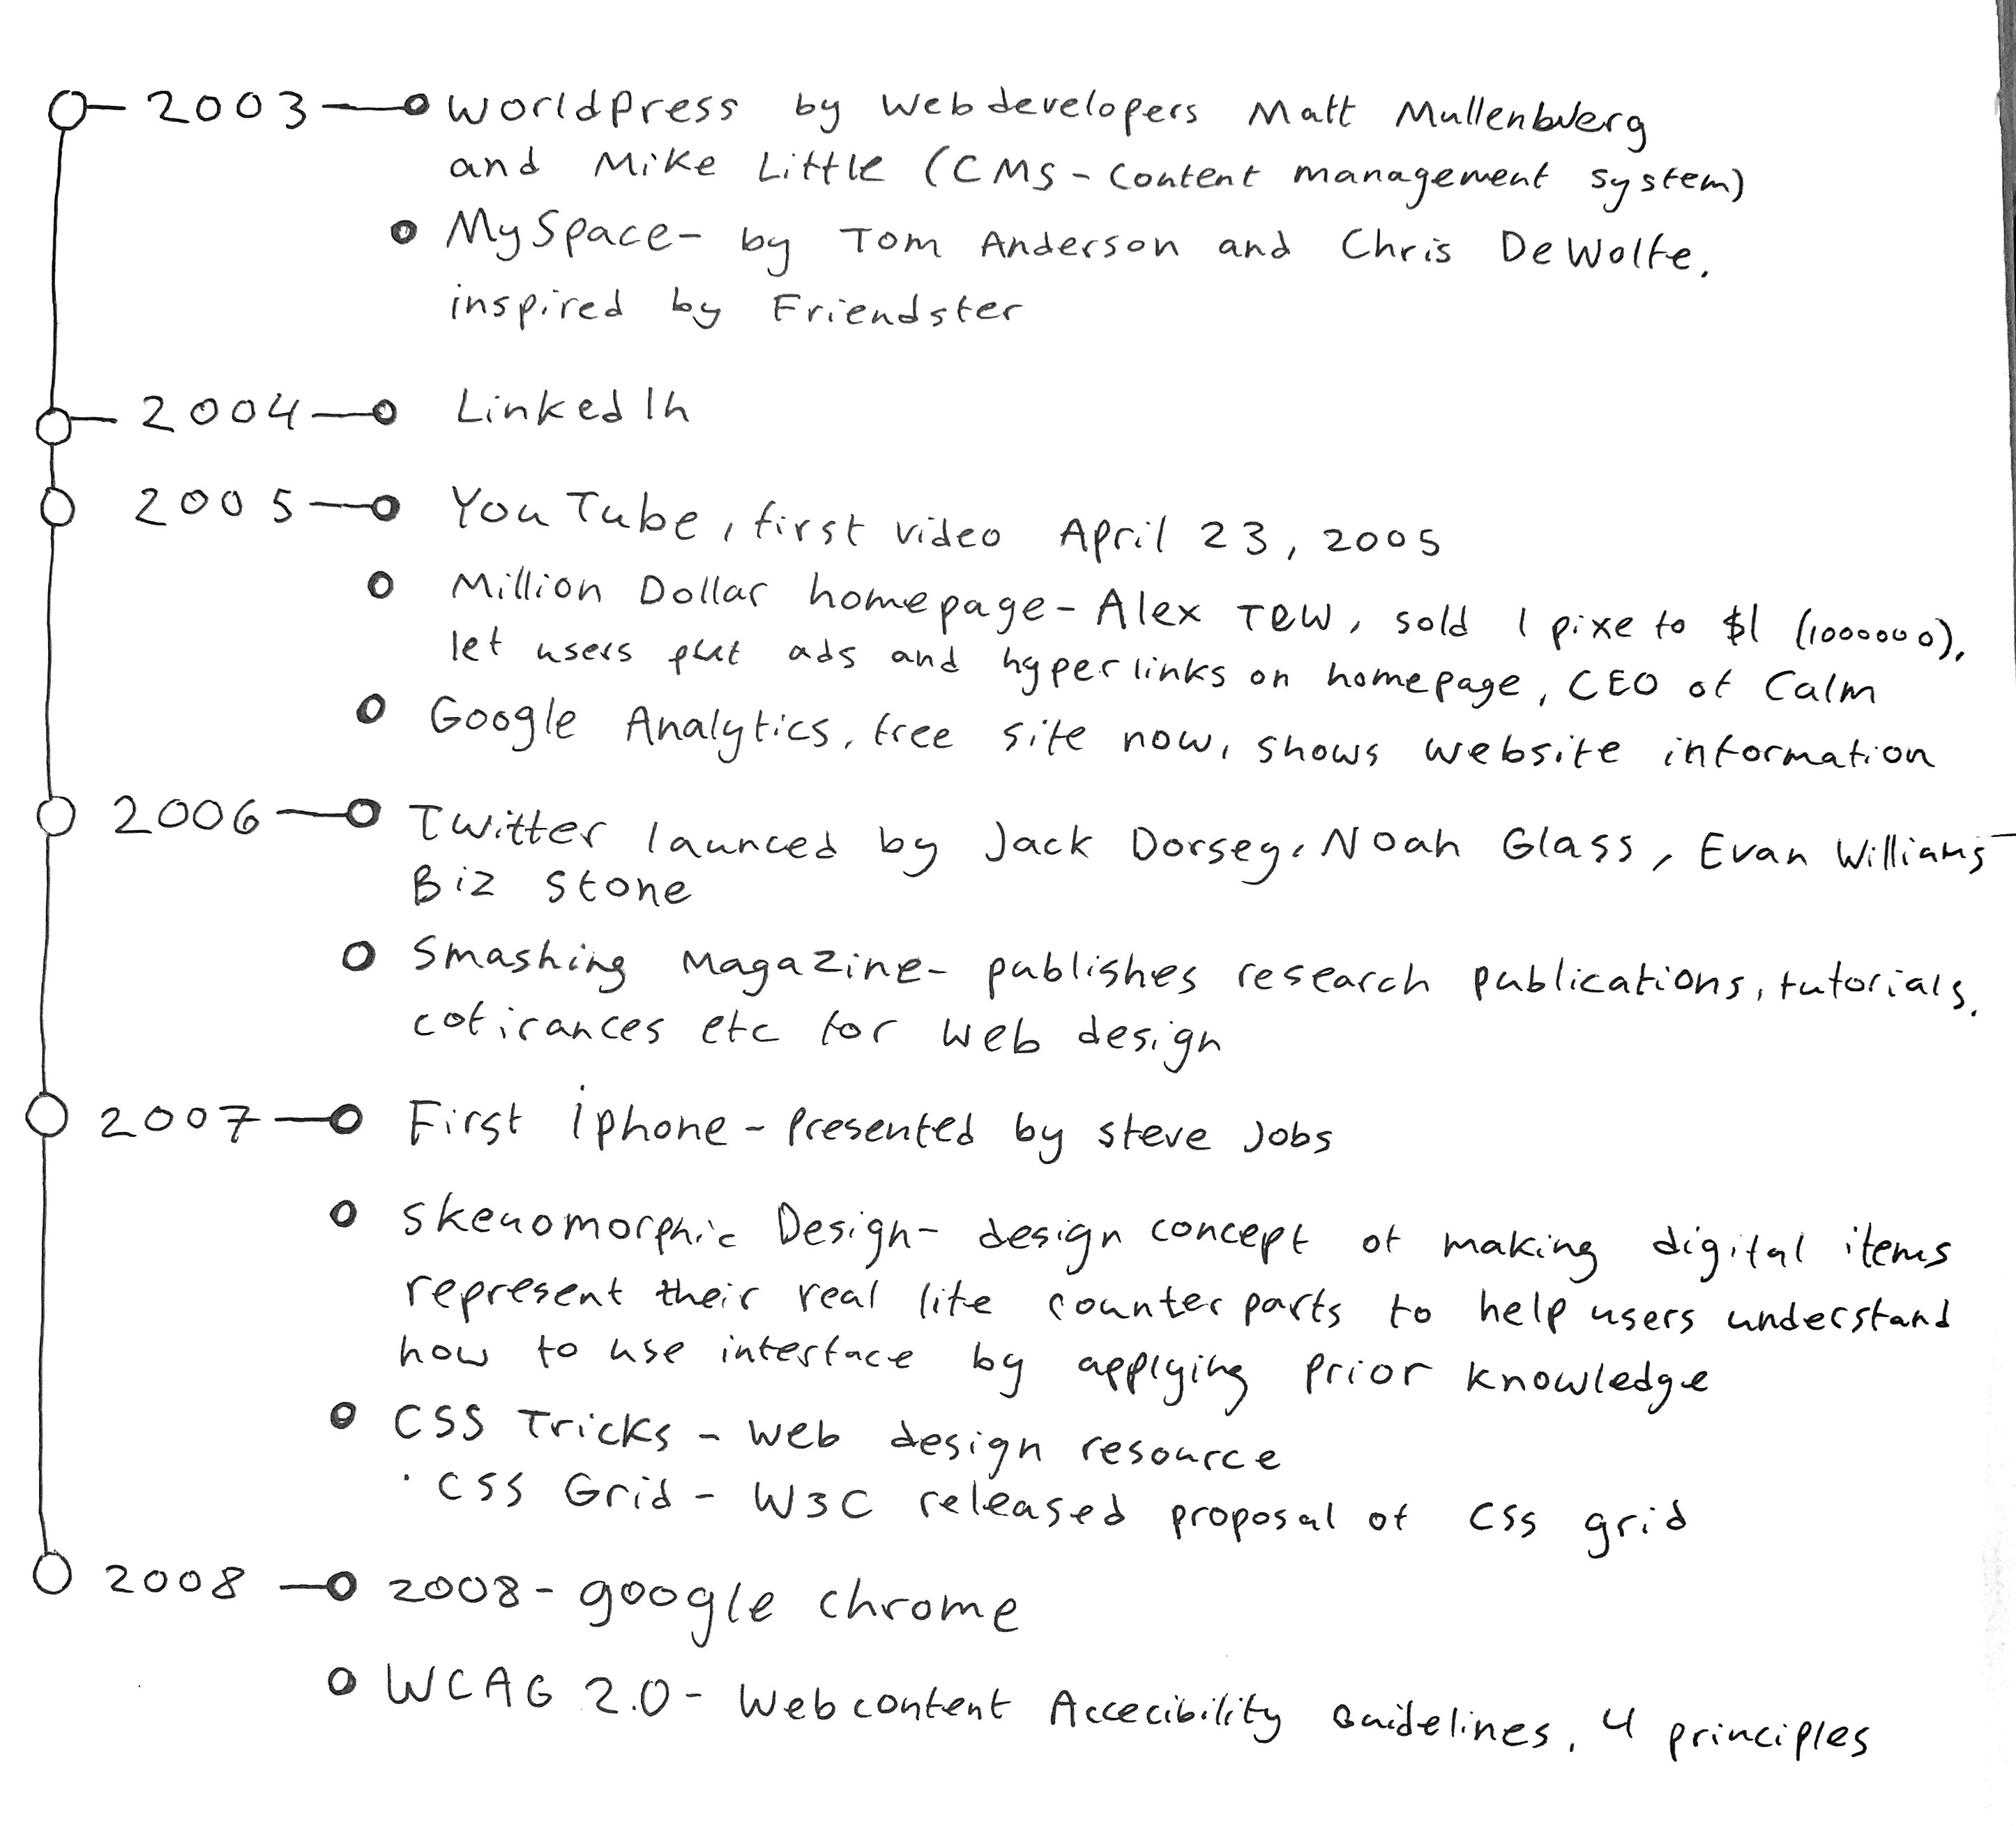 2003 worldpress by Webdevelopers Matt Mullenbwerg
and Mike Little (CMS - Content management system)
MySpace- by Tom Anderson and Chris DeWolfe.
inspired by Friendster
2004 LinkedIn
2005 YouTube, first video April 23, 2005
Million Dollar homepage- Alex Tew, sold 1 pixe to $1 (1000000),
let users put ads and hyperlinks on homepage, CEO of Calm
Google Analytics, free site now, shows website information
2006 Twitter launced by Jack Dorsey, Noah Glass, Evan Williams
Biz Stone
Smashing Magazine- publishes research publications, tutorials,
cofirances etc for web design
2007 First iphone - Presented by steve Jobs
Skenomorphic Design- design concept of making digital items
represent their real life counterparts to help users understand
how to use interface by applying prior knowledge
CSS Tricks - web design resource
· CSS Grid - W3C released proposal of CSS grid
2008 2008- google chrome
WCAG 2.0- Webcontent Accecibility Guidelines, 4 principles